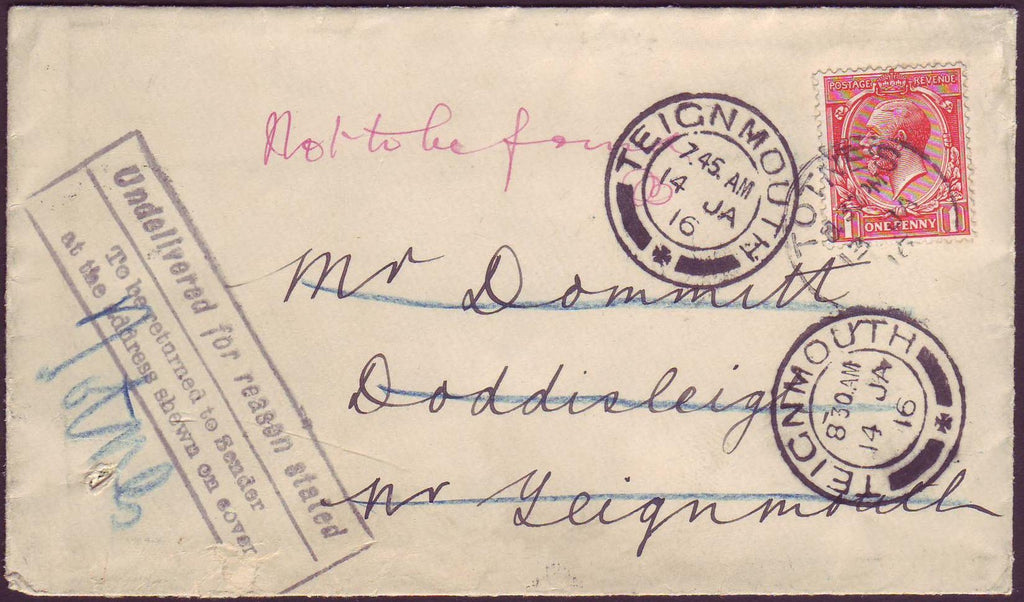 POSTAGE REVENUE
ONE PENNY
1 1
Not to be
TEIGNMOUTH
7.45. AM
14 JA
16
Undelivered for reason stated
To be returned to Sender
at the address shown on cover
Mr Dommitt
Doddisleigh
nr Teignmouth
TEIGNMOUTH
8 30 AM
14 JA
16